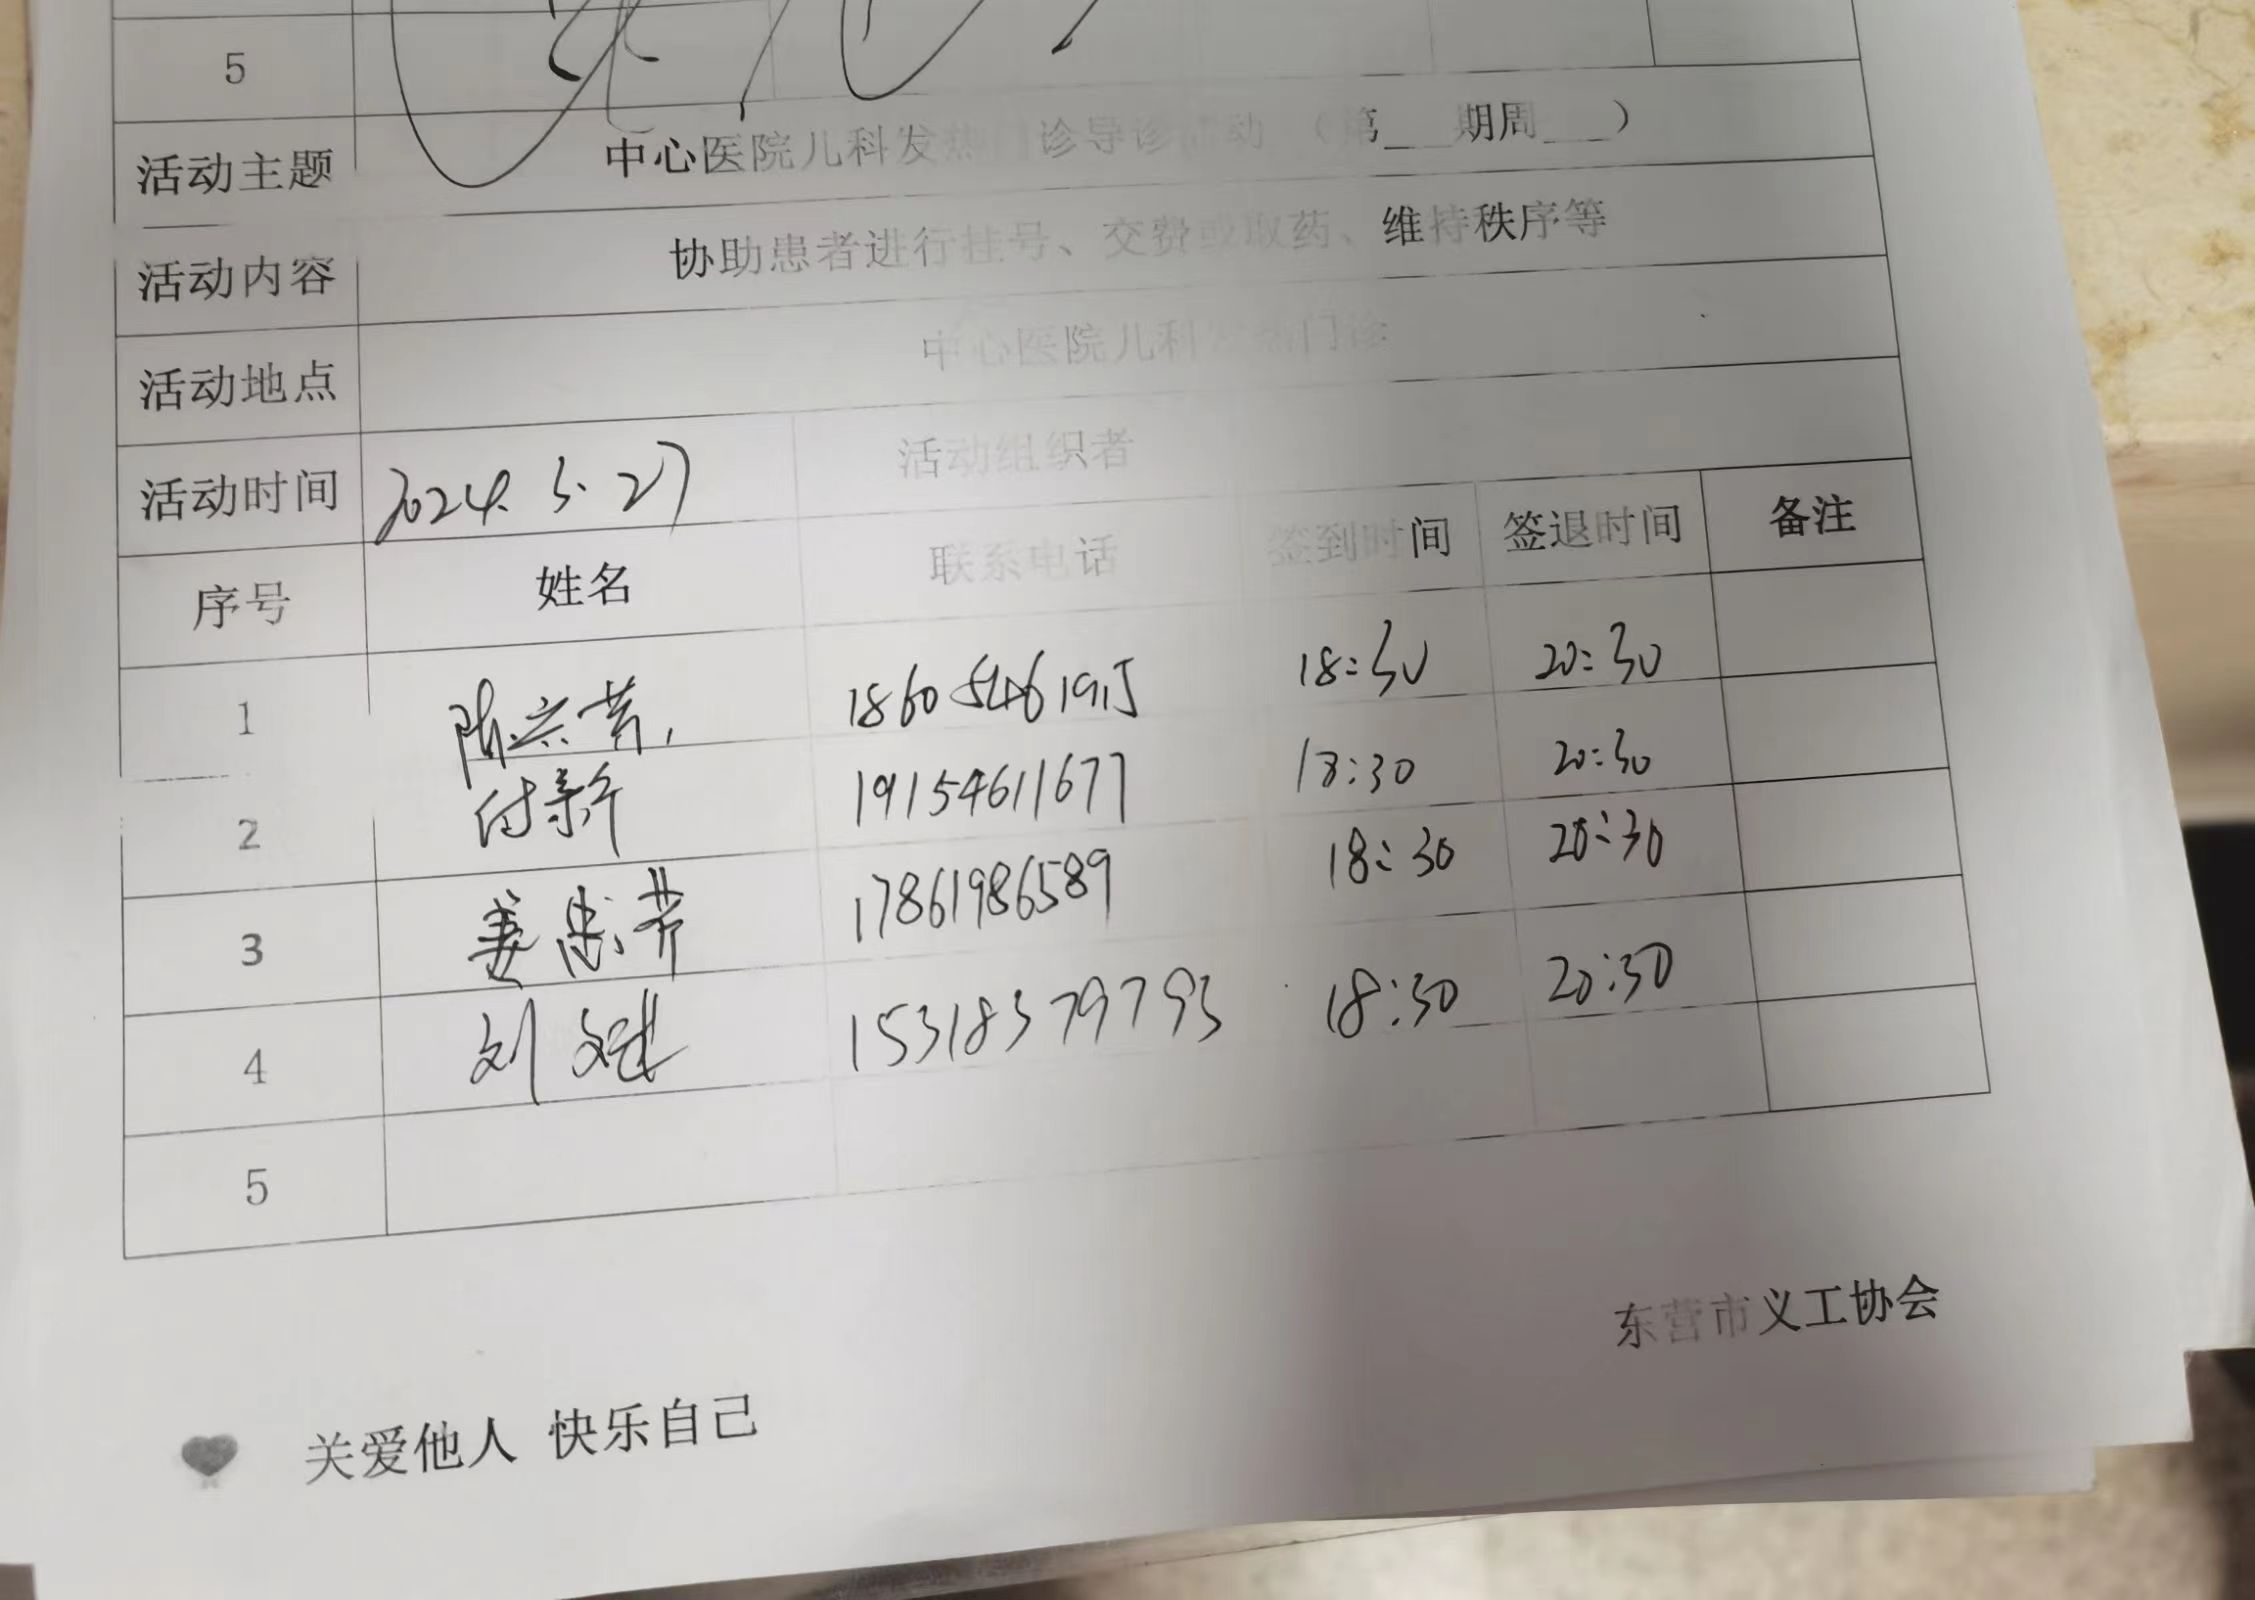 5
活动主题 中心医院儿科发热门诊导诊活动 （第__期周___）
活动内容 协助患者进行挂号、交费或取药、维持秩序等
活动地点 中心医院儿科发热门诊
活动时间 2024.5.27 活动组织者
序号 姓名 联系电话 签到时间 签退时间 备注
1 陈 18:30 20:30
2 付新 19154611677 18:30 20:30
3 姜 17861986589 18:30 20:30
4 刘 15318379793 18:30 20:30
5
东营市义工协会
关爱他人 快乐自己